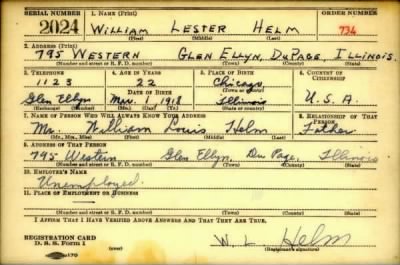 SERIAL NUMBER 1. NAME (Print) ORDER NUMBER
2024 WILLIAM LESTER HELM 734
(First) (Middle) (Last)
2. ADDRESS (Print)
795 WESTERN GLEN ELLYN, DUPAGE, ILLINOIS.
(Number and street or R. F. D. number) (Town) (County) (State)
3. TELEPHONE 4. AGE IN YEARS 5. PLACE OF BIRTH 6. COUNTRY OF CITIZENSHIP
1123 22 Chicago
DATE OF BIRTH (Town or county)
Glen Ellyn Mar. 1918 Illinois U.S.A.
(Exchange) (Number) (Mo.) (Day) (Yr.) (State or country)
7. NAME OF PERSON WHO WILL ALWAYS KNOW YOUR ADDRESS 8. RELATIONSHIP OF THAT PERSON
Mr. William Louis Helm Father
(Mr., Mrs., Miss) (First) (Middle) (Last)
9. ADDRESS OF THAT PERSON
795 Western Glen Ellyn, Du Page, Illinois
(Number and street or R. F. D. number) (Town) (County) (State)
10. EMPLOYER'S NAME
Unemployed.
11. PLACE OF EMPLOYMENT OR BUSINESS
(Number and street or R. F. D. number) (Town) (County) (State)
I AFFIRM THAT I HAVE VERIFIED ABOVE ANSWERS AND THAT THEY ARE TRUE.
REGISTRATION CARD
D. S. S. Form 1 W. L. Helm
(Registrant's signature)